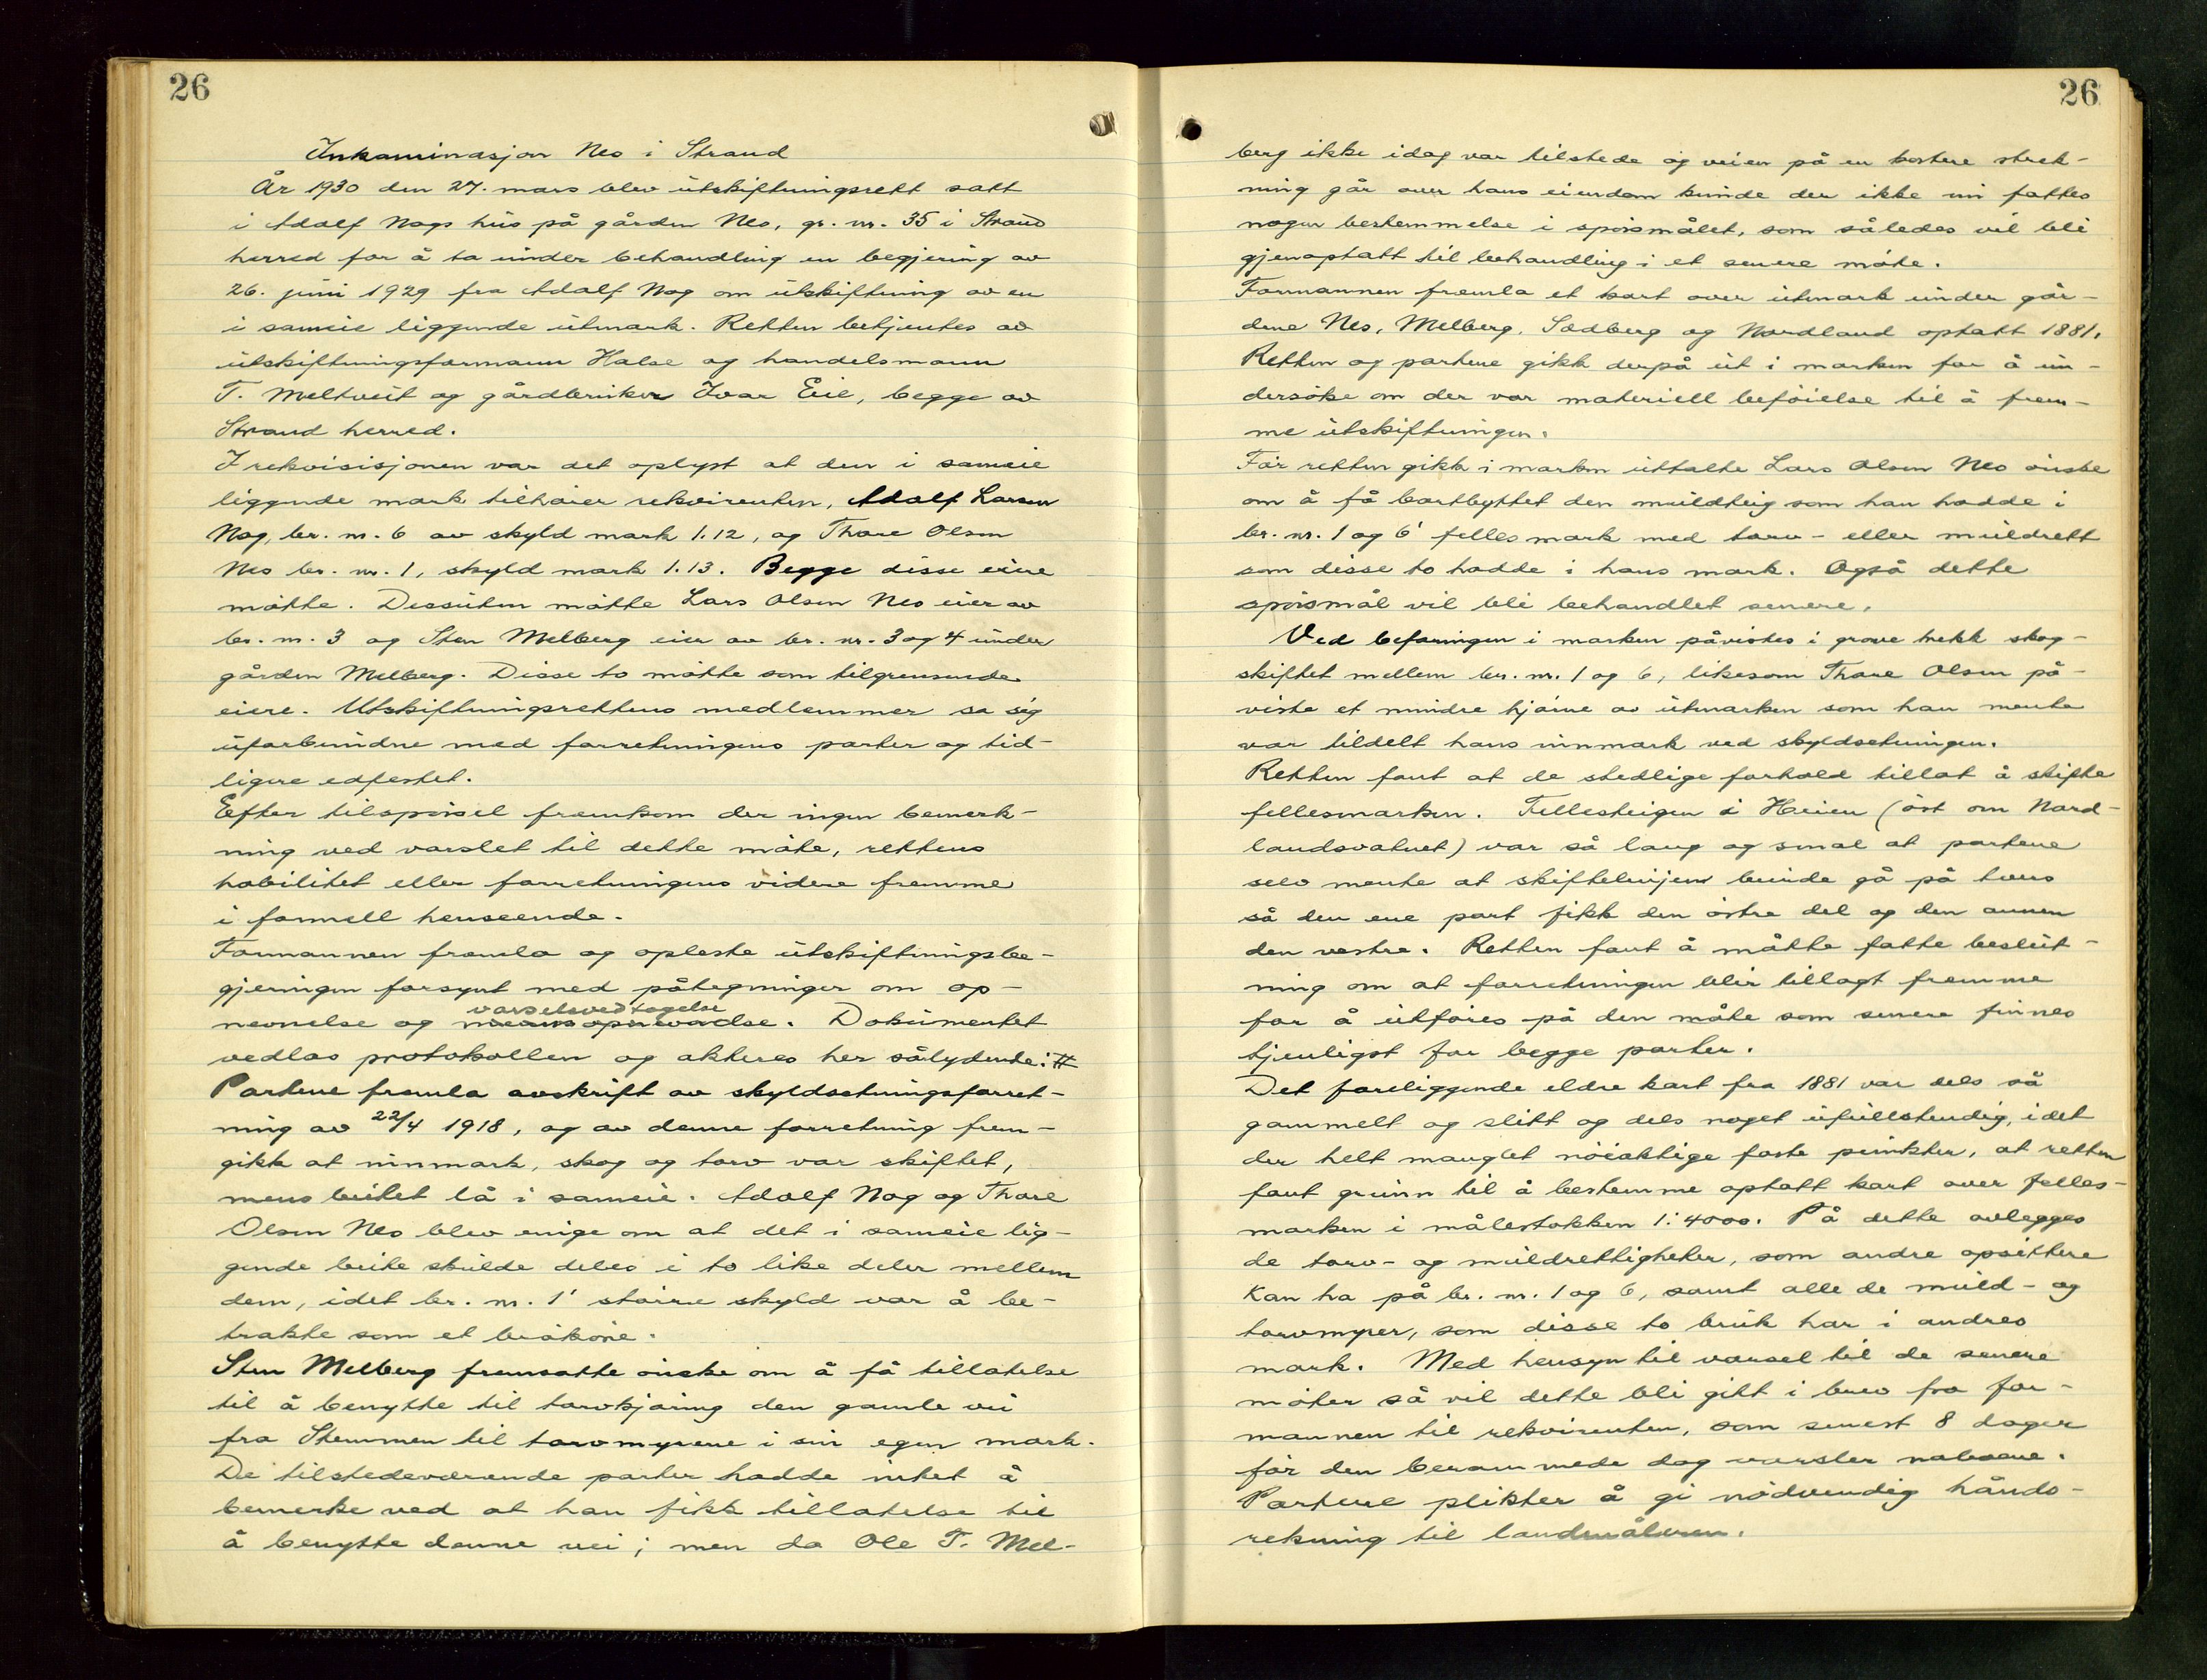 26
Inkaminasjon Nes i Strand
År 1930 den 27. mars blev utskiftningsrett satt
i Adolf Nags hus på gården Nes, gr. nr. 35 i Strand
herred for å ta under behandling en begjering av
26. juni 1929 fra Adolf Nag om utskiftning av en
i sameie liggende utmark. Retten betjentes av
utskiftningsformann Halse og handelsmann
T. Meltveit og gårdbruker Ivar Eie, begge av
Strand herred.
I rekvisisjonen var det oplyst at den i sameie
liggende mark tilhører rekvirenten, Adolf Larsen
Nag, br. nr. 6 av skyld mark 1.12, og Thore Olsen
Nes br. nr. 1, skyld mark 1.13. Begge disse eiere
møtte. Dessuten møtte Lars Olsen Nes eier av
br. nr. 3 og Sten Melberg eier av br. nr. 3 og 4 under
gården Melberg. Disse to møtte som tilgrensende
eiere. Utskiftningsrettens medlemmer sa sig
uforbundne med forretningens parter og tid-
ligere edfestet.
Efter tilspørsel fremkom der ingen bemerk-
ning ved varslet til dette møte, rettens
habilitet eller forretningens videre fremme
i formell henseende.
Formannen fremla og opleste utskiftningsbe-
gjeringen forsynt med påtegninger om op-
varselsvedtagelse
nevnelse og. Dokumentet
vedlas protokollen og akteres her sålydende: #
Partene fremla avskrift av skyldsetningsforret-
ning av 22/4 1918, og av denne forretning frem-
gikk at innmark, skog og torv var skiftet,
mens beitet lå i sameie. Adolf Nag og Thore
Olsen Nes blev enige om at det i sameie lig-
gende beite skulde deles i to like deler mellem
dem, idet br. nr. 1' større skyld var å be-
trakte som et brøkøre.
Sten Melberg fremsatte ønske om å få tillatelse
til å benytte til torvkjøring den gamle vei
fra Stemmen til torvmyrene i sin egen mark.
De tilstedeværende parter hadde intet å
bemerke ved at han fikk tillatelse til
å benytte denne vei; men da Ole T. Mel-
26
berg ikke idag var tilstede og veien på en kortere strek-
ning går over hans eiendom kunde der ikke nu fattes
nogen bestemmelse i spørsmålet, som således vil bli
gjenoptatt til behandling i et senere møte.
Formannen fremla et kart over utmark under går-
dene Nes, Melberg, Sædberg og Nordland optatt 1881.
Retten og partene gikk derpå ut i marken for å un-
dersøke om der var materiell beføielse til å frem-
me utskiftningen.
Før retten gikk i marken uttalte Lars Olsen Nes ønske
om å få bortbyttet den muldteig som han hadde i
br. nr. 1 og 6' fellesmark med torv- eller muldrett
som disse to hadde i hans mark. Også dette
spørsmål vil bli behandlet senere.
Ved befaringen i marken påvistes i grove trekk skog-
skiftet mellem br. nr. 1 og 6, likesom Thore Olsen på-
viste et mindre hjørne av utmarken som han mente
var tildelt hans innmark ved skyldsetningen.
Retten fant at de stedlige forhold tillot å skifte
fellesmarken. Fellesteigen i Heien (øst om Nord-
landsvatnet) var så lang og smal at partene
selv mente at skiftelinjen kunde gå på tvers
så den ene part fikk den østre del og den annen
den vestre. Retten fant å måtte fatte beslut-
ning om at forretningen blir tillagt fremme
for å utføres på den måte som senere finnes
tjenligst for begge parter.
Det foreliggende eldre kart fra 1881 var dels så
gammelt og slitt og dels noget ufullstendig, idet
der helt manglet nøiaktige faste punkter, at retten
fant grunn til å bestemme optatt kart over felles-
marken i målestokken 1:4000. På dette avlegges
de torv- og muldrettigheter, som andre opsittere
kan ha på br. nr. 1 og 6, samt alle de muld- og
torvmyrer, som disse to bruk har i andres
mark. Med hensyn til varsel til de senere
møter så vil dette bli gitt i brev fra for-
mannen til rekvirenten, som senest 8 dager
før den berammede dag varsler naboene.
Partene plikter å gi nødvendig hånds-
rekning til landmåleren.